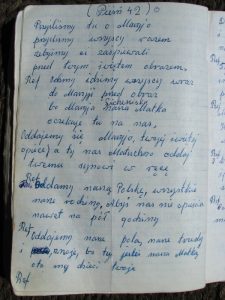 (Pieśń 42)
Przyszliśmy tu o Maryjo
przyszliśmy wszyscy razem
żebyśmy ci zaśpiewali
przed twym świętem obrazem.
Ref idźmy wszyscy wraz
do Maryji przed obraz
bo Maryja nasza Matka
oczekuje tu na nas.
Oddajemy sie Maryjo, twojej świętej
opiece a ty nas Matuchno oddaj
twemu synowi w ręce
Ref
Oddamy naszą Polskę, wszystkie
nasze rodziny, abyś nas nie opuściła
nawet na pół godziny
Ref
Oddajemy nasze pola, nasze trudy
i znoje, bo ty jesteś nasza Matką
oto my dzieci twoje
Ref